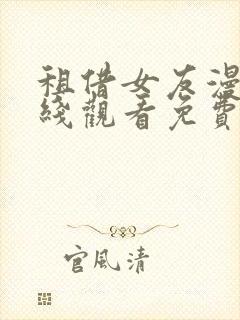 租借女友漫
綫觀看免費
官風清